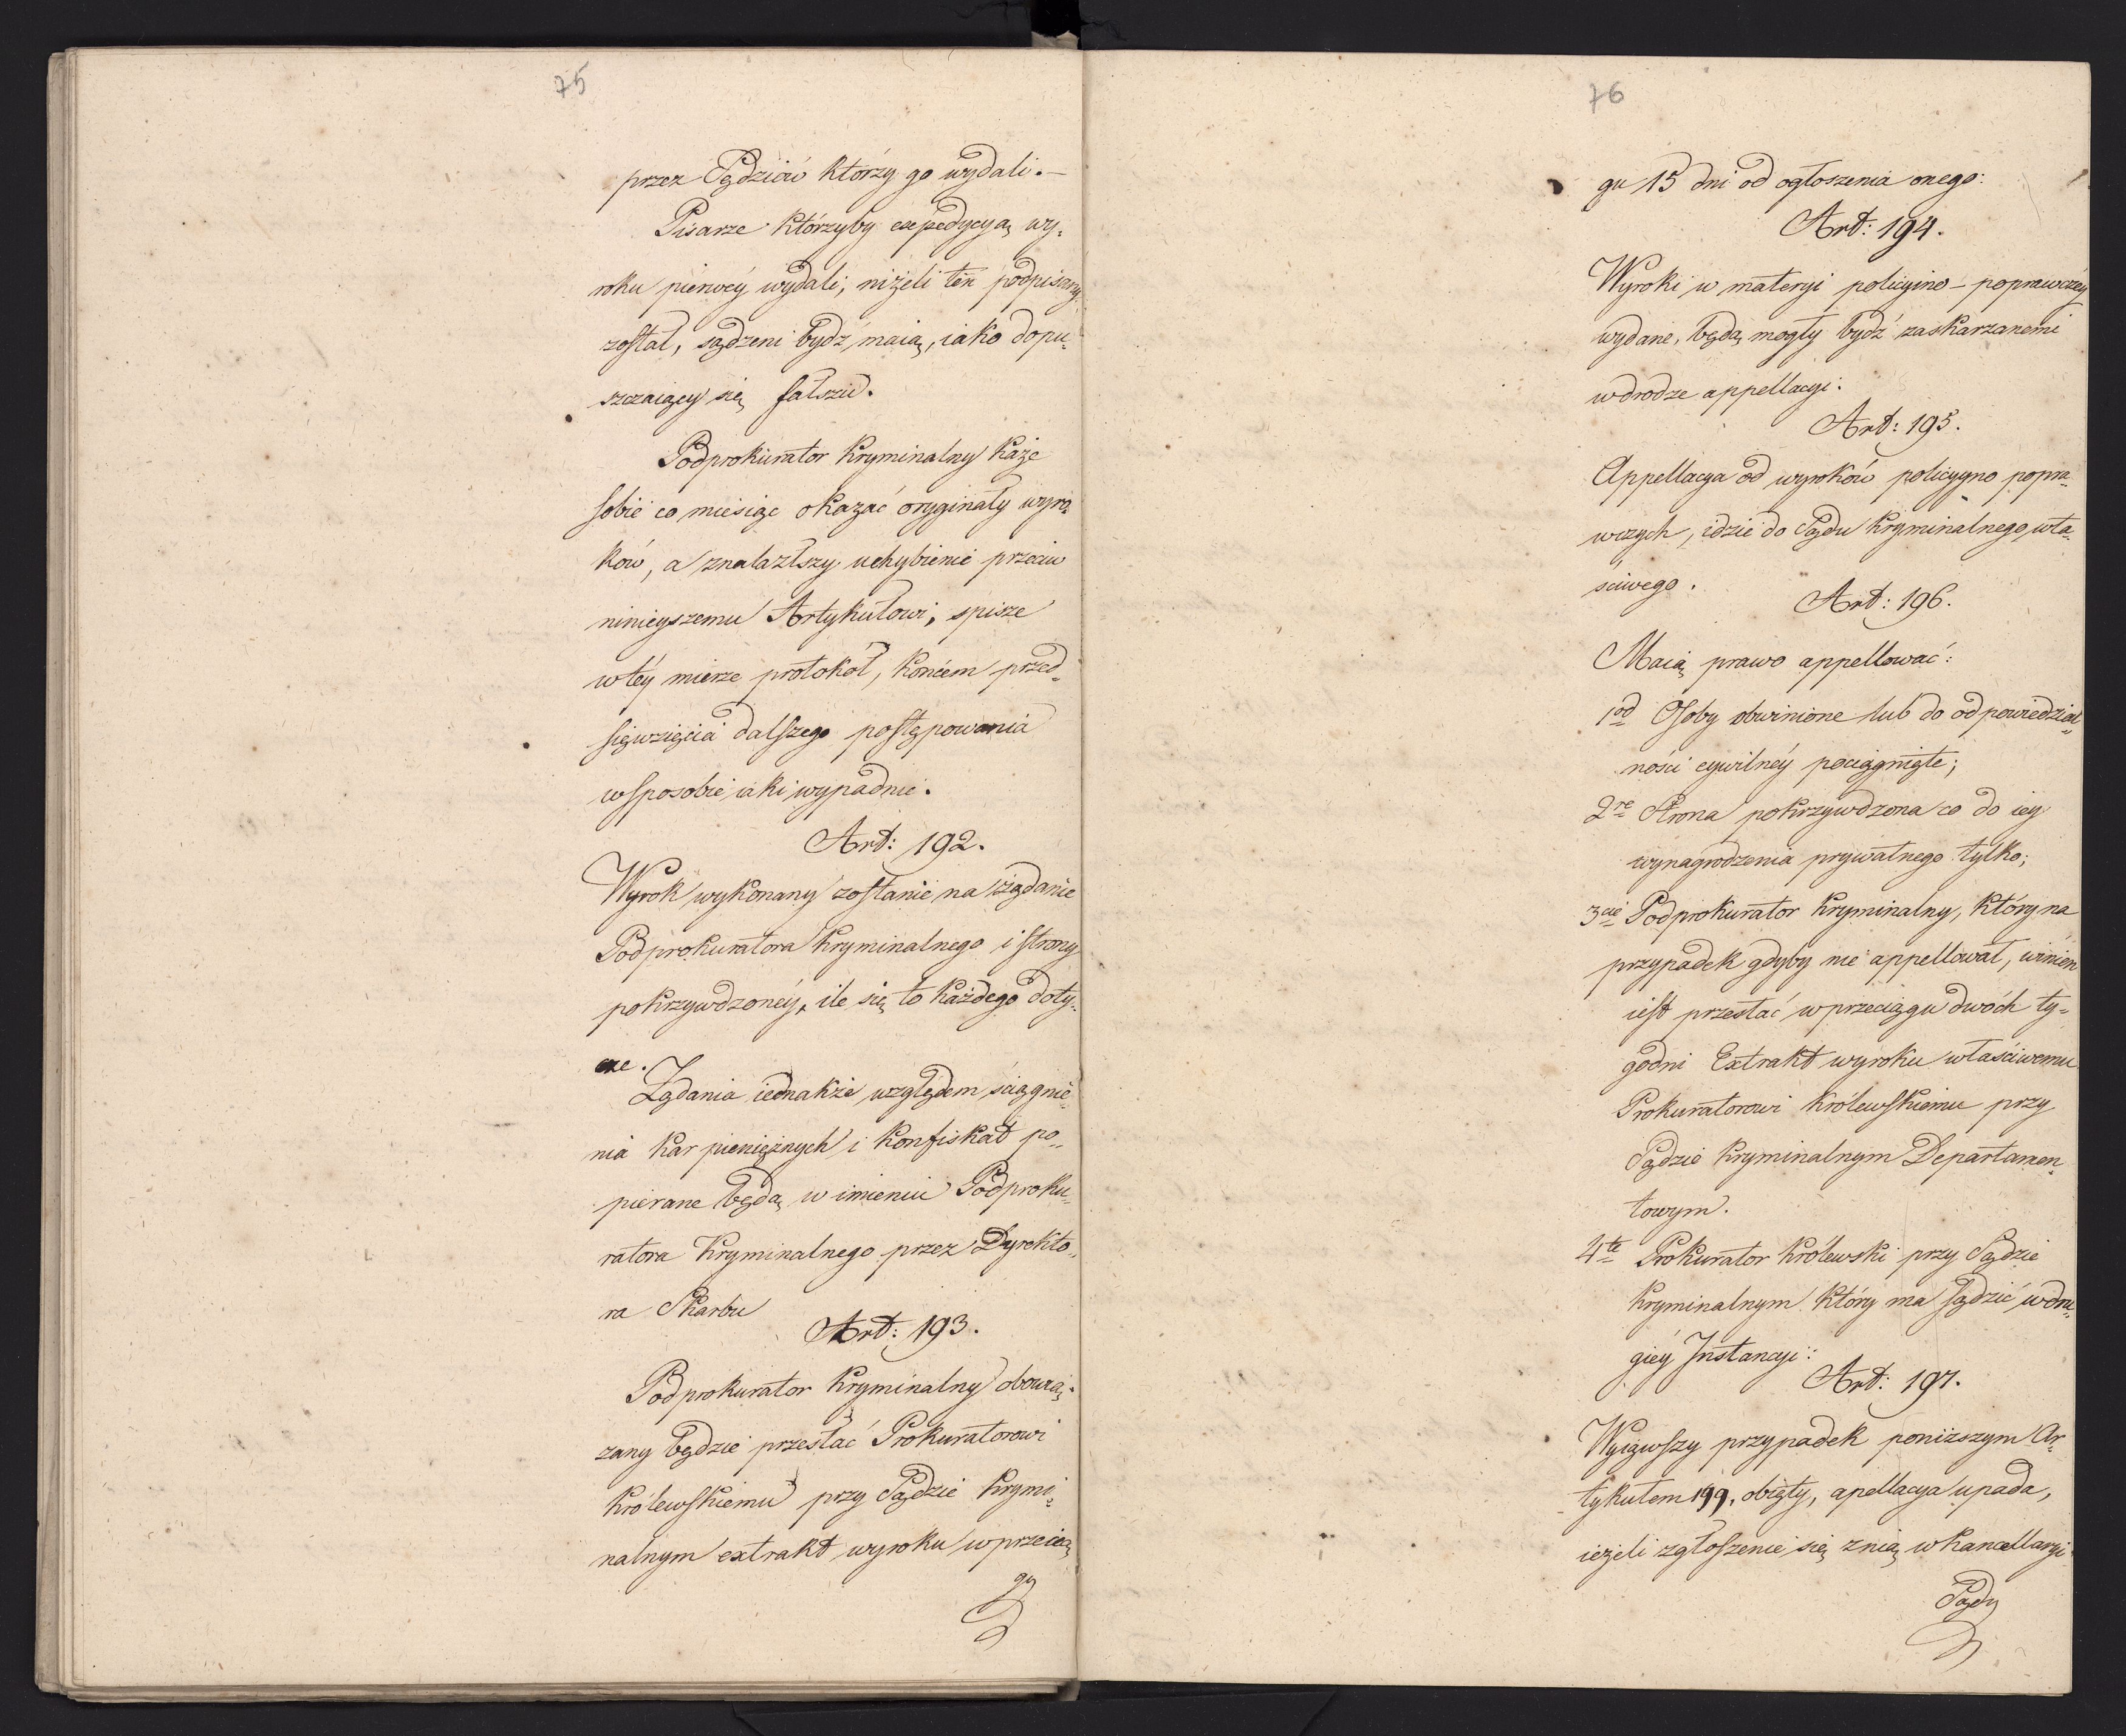 75
przez Sędziów którzy go wydali.—
Pisarze którzyby expedycyą wy-
roku pierwéy wydali, niżeli ten podpisany
został, sądzeni bydź maią, iako dopu-
szczaiący się fałszu.
Podprokurator Kryminalny każe
sobie co miesiąc okazać oryginały wyro-
ków, a znalazłszy uchybienie przeciw
ninieyszemu Artykułowi, spisze
w téy mierze protokół, końcem przed-
sięwzięcia dalszego postępowania
w sposobie iaki wypadnie.
Art: 192.
Wyrok wykonany zostanie na żądanie
Podprokuratora Kryminalnego i strony
pokrzywdzonéy, ile się to każdego doty-
cze.
Żądania iednakże względem ściągnie-
nia kar pieniężnych i konfiskat po-
pierane będą w imieniu Podproku-
ratora Kryminalnego przez Dyrekto-
ra Skarbu
Art: 193.
Podprokurator Kryminalny obowią-
zany będzie przesłać Prokuratorowi
Królewskiemu przy Sądzie Krymi-
nalnym extrakt wyroku w przecią-
gu
76
gu 15 dni od ogłoszenia onego:
Art: 194.
Wyroki w materyi policyino-poprawczéy
wydane, będą mogły bydź zaskarzanemi
w drodze appellacyi.
Art: 195.
Appellacya od wyroków policyyno popra-
wczych, idzie do Sądu Kryminalnego wła-
sciwego.
Art: 196.
Maią prawo appellować:
1od Osoby obwinione lub do odpowiedzial-
ności cywilnéy pociągnięte;
2re Strona pokrzywdzona co do iey
wynagrodzenia prywatnego tylko;
3cie Podprokurator Kryminalny, który na
przypadek gdyby nie appellował, winien
iest przesłać w przeciągu dwóch ty-
godni Extrakt wyroku właściwemu
Prokuratorowi Królewskiemu przy
Sądzie Kryminalnym Departamen-
towym.
4te Prokurator Królewski przy Sądzie
Kryminalnym który ma sądzić w dru-
giéy Instancyi:
Art: 197.
Wyiąwszy przypadek ponizszym Ar-
tykułem 199, obięty, apellacya upada,
ieżeli zgłoszenie się z nią w kancellaryi
Sądu